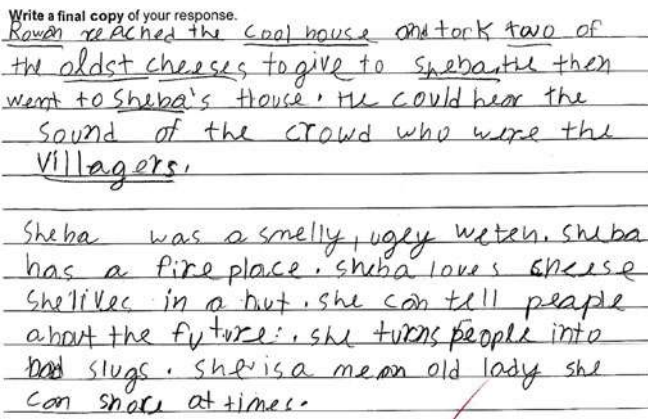 Write a final copy of your response.
Rowan reached the cool house and tork two of
the oldst cheeses to give to Sheba, He then
went to Sheba's House. He could hear the
Sound of the crowd who were the
Villagers.
Sheba was a smelly, ugey weten. Sheba
has a fire place. Sheba loves cheese
She lives in a hut. She can tell peaple
about the future. She turns people into
slugs. She is a mean old lady she
can snore at times.